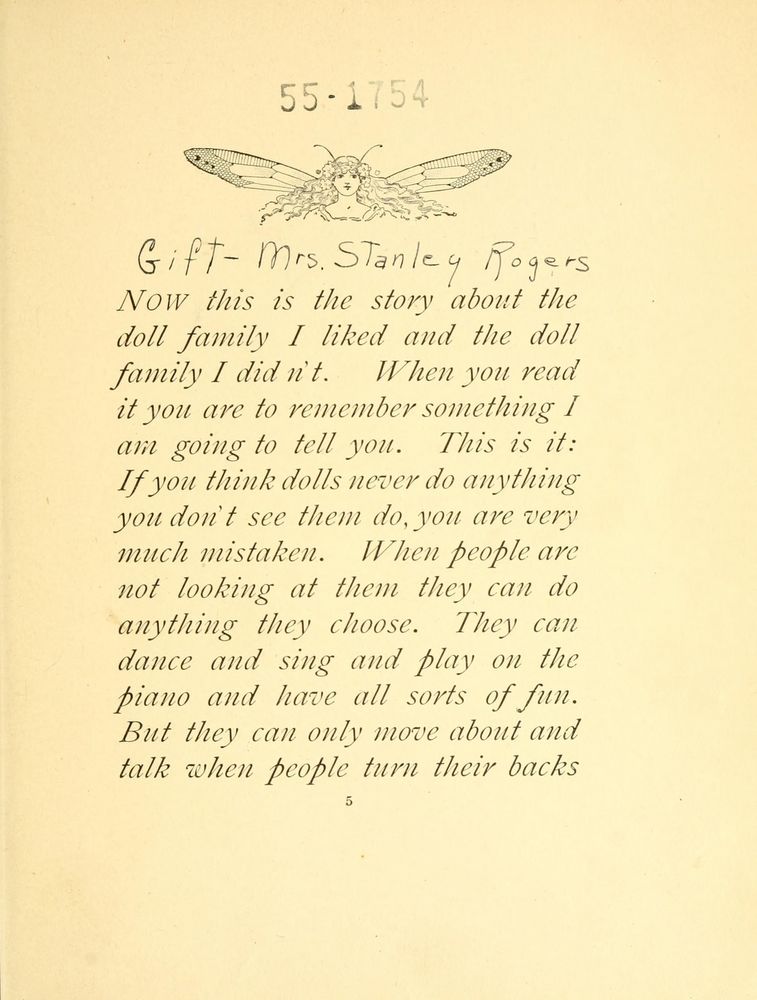 55-1754
Gift- Mrs. Stanley Rogers
NOW this is the story about the
doll family I liked and the doll
family I did n't. When you read
it you are to remember something I
am going to tell you. This is it:
If you think dolls never do anything
you don't see them do, you are very
much mistaken. When people are
not looking at them they can do
anything they choose. They can
dance and sing and play on the
piano and have all sorts of fun.
But they can only move about and
talk when people turn their backs
5